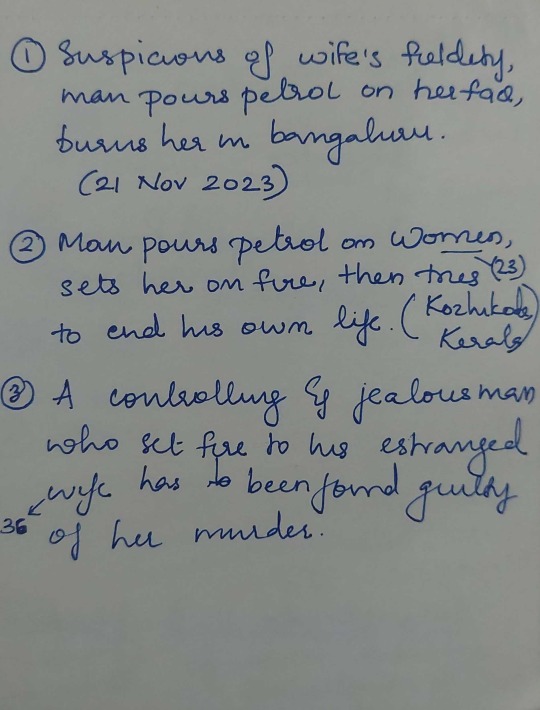 ① Suspicious of wife's fieldity,
man pours petrol on her face,
burns her in bangaluru.
(21 Nov 2023)
② Man pours petrol on women,
(23)
sets her on fire, then tries
to end his own life. (Kozhikode
Kerala)
③ A controlling & jealous man
who set fire to his estranged
wife has been found guilty
36
of her murder.